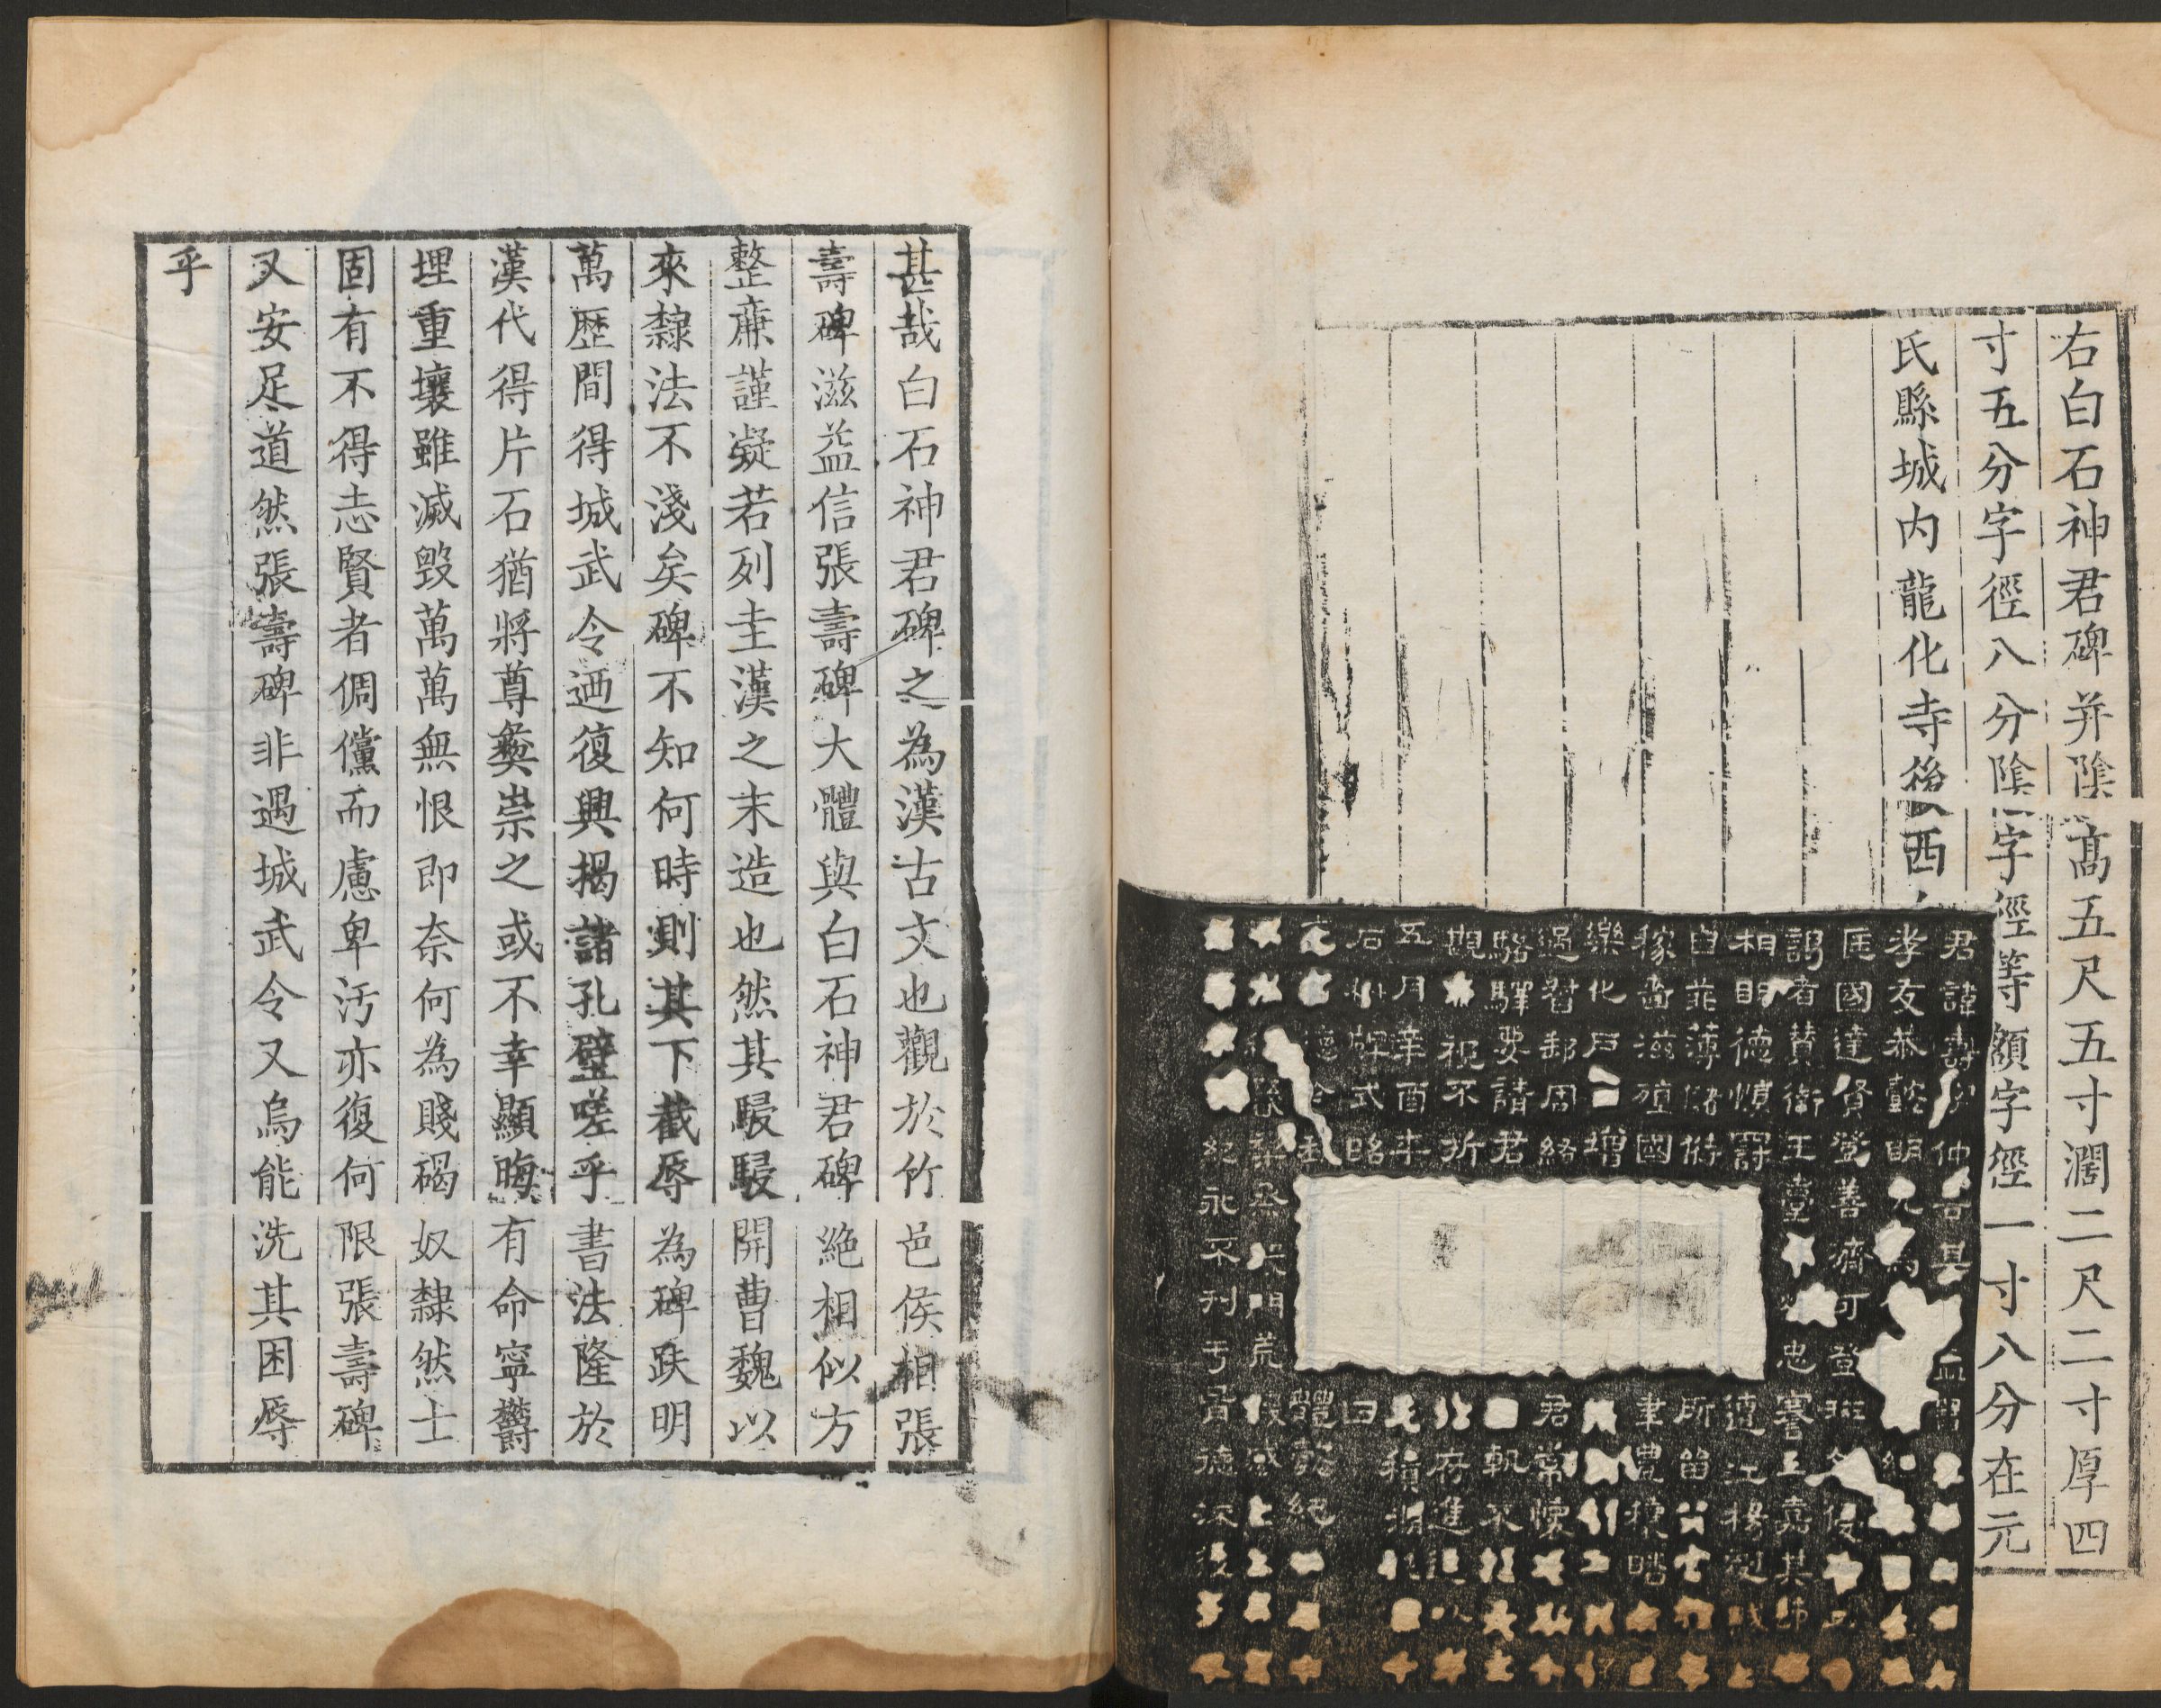 右白石神君碑并陰高五尺五寸濶二尺二寸厚四
寸五分字徑八分陰字徑等額字徑一寸八分在元
氏縣城内龍化寺後西
君諱壽字仲吾其
孝友恭懿明允
匡國達賢登善濟可登班
謁者贊衛王臺忠謇上嘉其
相明德慎罰遷江楊劇
自菲薄儲偫所留
稼嗇滋殖國聿豊穰
樂化戶增
過督郵周紘君常懷
駱驛要請君軌不
覜視不折府進退
五月辛酉卒
石樹碑式昭曰
體懿純
荒
紀永不刋于胥德流後
甚哉白石神君碑之為漢古文也觀於竹邑侯相張
壽碑滋益信張壽碑大體與白石神君碑絶相似方
整肅謹凝若列圭漢之末造也然其駸駸開曹魏以
來隸法不淺矣碑不知何時則其下截辱為碑趺明
萬歷間得城武令迺復興揭諸孔壁嗟乎書法隆於
漢代得片石猶將尊彝崇之或不幸顯晦有命寧鬱
埋重壤雖滅毀萬萬無恨即奈何為賤碣奴隸然士
固有不得志賢者倜儻而慮卑汚亦復何限張壽碑
又安足道然張壽碑非遇城武令又烏能洗其困辱
乎